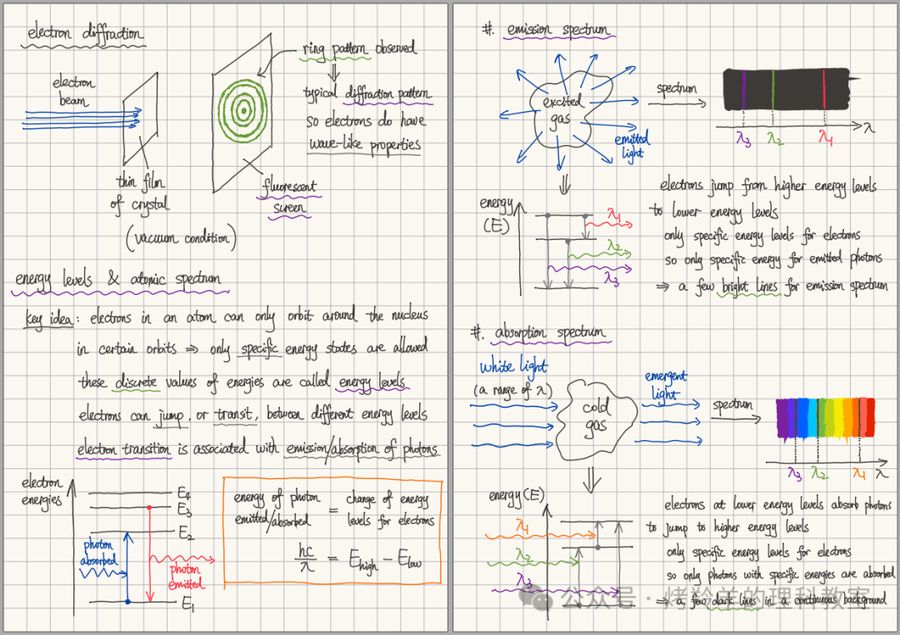 electron diffraction
electron
beam
thin film
of crystal
(vacuum condition)
fluorescent
screen
ring pattern observed
⇓
typical diffraction pattern
so electrons do have
wave-like properties
energy levels & atomic spectrum
key idea: electrons in an atom can only orbit around the nucleus
in certain orbits ⇒ only specific energy states are allowed
these discrete values of energies are called energy levels
electrons can jump, or transit, between different energy levels
electron transition is associated with emission/absorption of photons
electron
energies
E4
E3
E2
E1
photon
absorbed
photon
emitted
energy of photon
emitted/absorbed
=
change of energy
levels for electrons
hc/λ = Ehigh - Elow
#. emission spectrum
excited
gas
emitted
light
spectrum
λ3 λ2 λ1 λ
energy
(E)
λ1
λ2
λ3
electrons jump from higher energy levels
to lower energy levels
only specific energy levels for electrons
so only specific energy for emitted photons
⇒ a few bright lines for emission spectrum
#. absorption spectrum
white light
(a range of λ)
cold
gas
emergent
light
spectrum
λ3 λ2 λ1 λ
energy (E)
λ1
λ2
λ3
electrons at lower energy levels absorb photons
to jump to higher energy levels
only specific energy levels for electrons
so only photons with specific energies are absorbed
⇒ a few dark lines in a continuous background
公众号 · 烤羚羊的理科教室